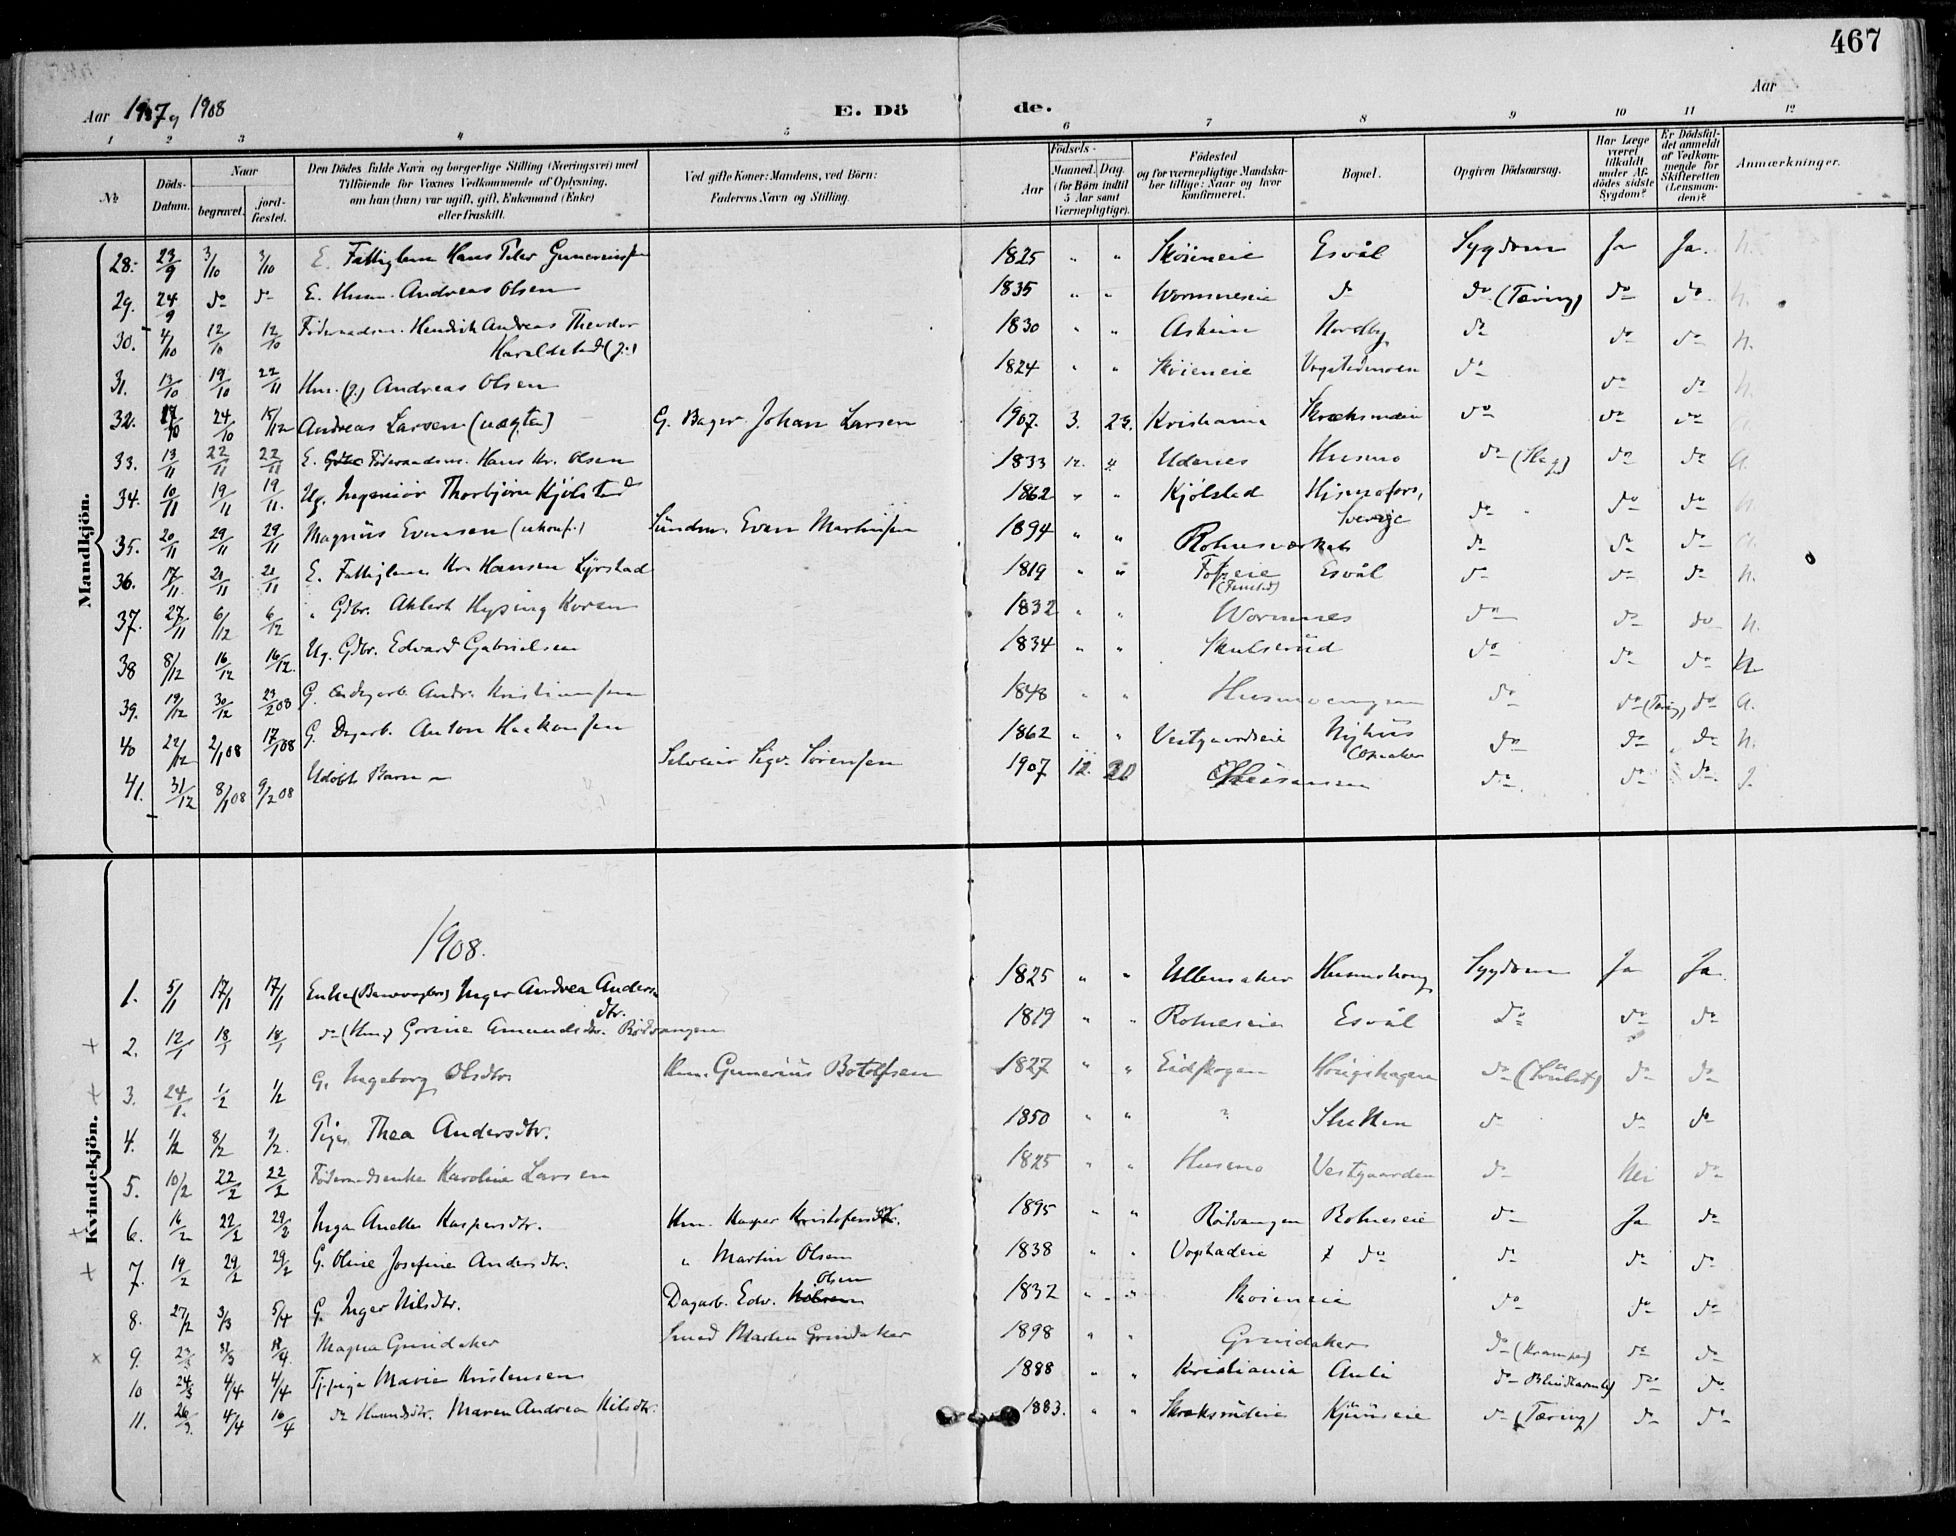 467
Aar 1907 og 1908 E. Dö de. Aar
1 2 3 4 5 6 7 8 9 10 11 12
No. Döds-Datum. Naar begravet. jordfæstet. Den Dödes fulde Navn og borgerlige Stilling (Næringsvei) med Tilföiende for Voxnes Vedkommende af Oplysning, om han (hun) var ugift, gift, Enkemand (Enke) eller fraskilt. Ved gifte Koner: Mandens, ved Börn: Faderens Navn og Stilling. Födsels- Aar Maaned. Dag. (for Börn indtil 5 Aar samt Værnepligtige). Födested og for værnepligtige Mandskaber tillige: Naar og hvor konfirmeret. Bopæl. Opgiven Dödsaarsag. Har Læge været tilkaldt under Afdödes sidste Sygdom? Er Dödsfaldet anmeldt af Vedkommende for Skifteretten (Lensmanden)? Anmærkninger.
Mandkjön.
28. 23/9 3/10 3/10 E. Fattiglem Hans Peder Gunerius 1825 " " Skøieneie Esvål Sygdom Ja Ja. N.
29. 24/9 do do E. Husm. Andreas Olsen 1835 " " Wormneseie do do (Tæring) do do N.
30. 4/10 12/10 12/10 Föderaadsm. Hendrik Andreas Theodor 1830 " " Askim Nordby do do do N.
Haraldstad (g.)
31. 13/10 19/10 22/11 Hm. (g.) Andreas Olsen 1824 " " Skøieneie Vogstadmoen do do do N
32. 17/10 24/10 15/12 Andreas Larsen (uægte) G. Bager Johan Larsen 1907. 3. 23. Kristiania do do do
33. 13/11 22/11 22/11 E. Föderaadsm. Hans Kr. Olsen 1833 12. 4 Udenes Husmo do (Slag) do do A.
34. 10/11 19/11 19/11. Ug. Ingeniør Thorbjørn Kjölstad 1862 " " Kjölstad Sverige do do do
35. 20/11 29/11 29/11 Magnus Evensen (ukonf.) Even Martinsen 1894 " " Rolnesværket do do do
36. 17/11 21/11 21/11 E. Fattiglem Kr. Hansen Lyrstad 1819 " " Esvål do do do N.
37. 27/11 6/12 6/12 " Gdbr. Ahlert Hysing Koren 1832 " " Wormnes do do do N.
38 8/12 16/12 16/12. Ug. Gdbr. Edvard Gabrielsen 1834 " " Skulsrud do do do N
39. 19/12 30/12 23/2 08 G. Andr. Kristiansen 1848 " " do do (Tæring) do A.
40 22/12 2/1 08 17/1 08 G. Dagarb. Anton Haakonsen 1862 " " Vestgaardseie Nyhus do do do N.
41. 31/12 8/1 08 9/2 08 Udöbt Barn Selveier Sigv. Sörensen 1907 12. 30 do do do
Kvindekjön.
1908.
1. 5/1 17/1 17/1 Enke Inger Andrea Anders- 1825 " " Ullensaker Sygdom Ja Ja.
dtr.
2. 12/1 18/1 18/1 do (Hm.) Gorine Amundsdtr. Rödvangen 1819 " " Rolneseie Esvål do do do
3. 24/1. 1/2 1/2 G. Ingeborg Olsdtr. Hm. Gunerius Botolfsen 1827 " " Eidskogen do do do
4. 1/2 8/2 9/2. Pige Thea Andersdtr. 1850 " " ? do do do
5. 10/2 22/2 22/2 Föderaadsenke Karoline Larsen 1825 " " Husmo Vestgaarden do Nei do
6. 16/2 22/2 29/2 Inga Anette Kaspersdtr. Hm. Kasper Kristofersen 1895 " " Rödvangen Rolneseie do Ja do
7. 19/2 29/2 29/2 G. Oline Josefine Andersdtr. " Martin Olsen 1838 " " Vogstadeie do do do do
8. 27/2 3/3 5/4 G. Inger Nilsdtr. Dagarb. Edv. Olsen 1832 " " Skøieneie do do do
9. Magna Grindaker Smed Martin Grindaker 1898 " " Grindaker do (Kramper) do do
10 24/3 4/4 4/4 Marie Kristensen 1888 " " Kristiania Auli do do do
11. 26/3. 4/4 16/4 do Maren Andrea Nilsdtr. 1883. " " do (Tæring) do do